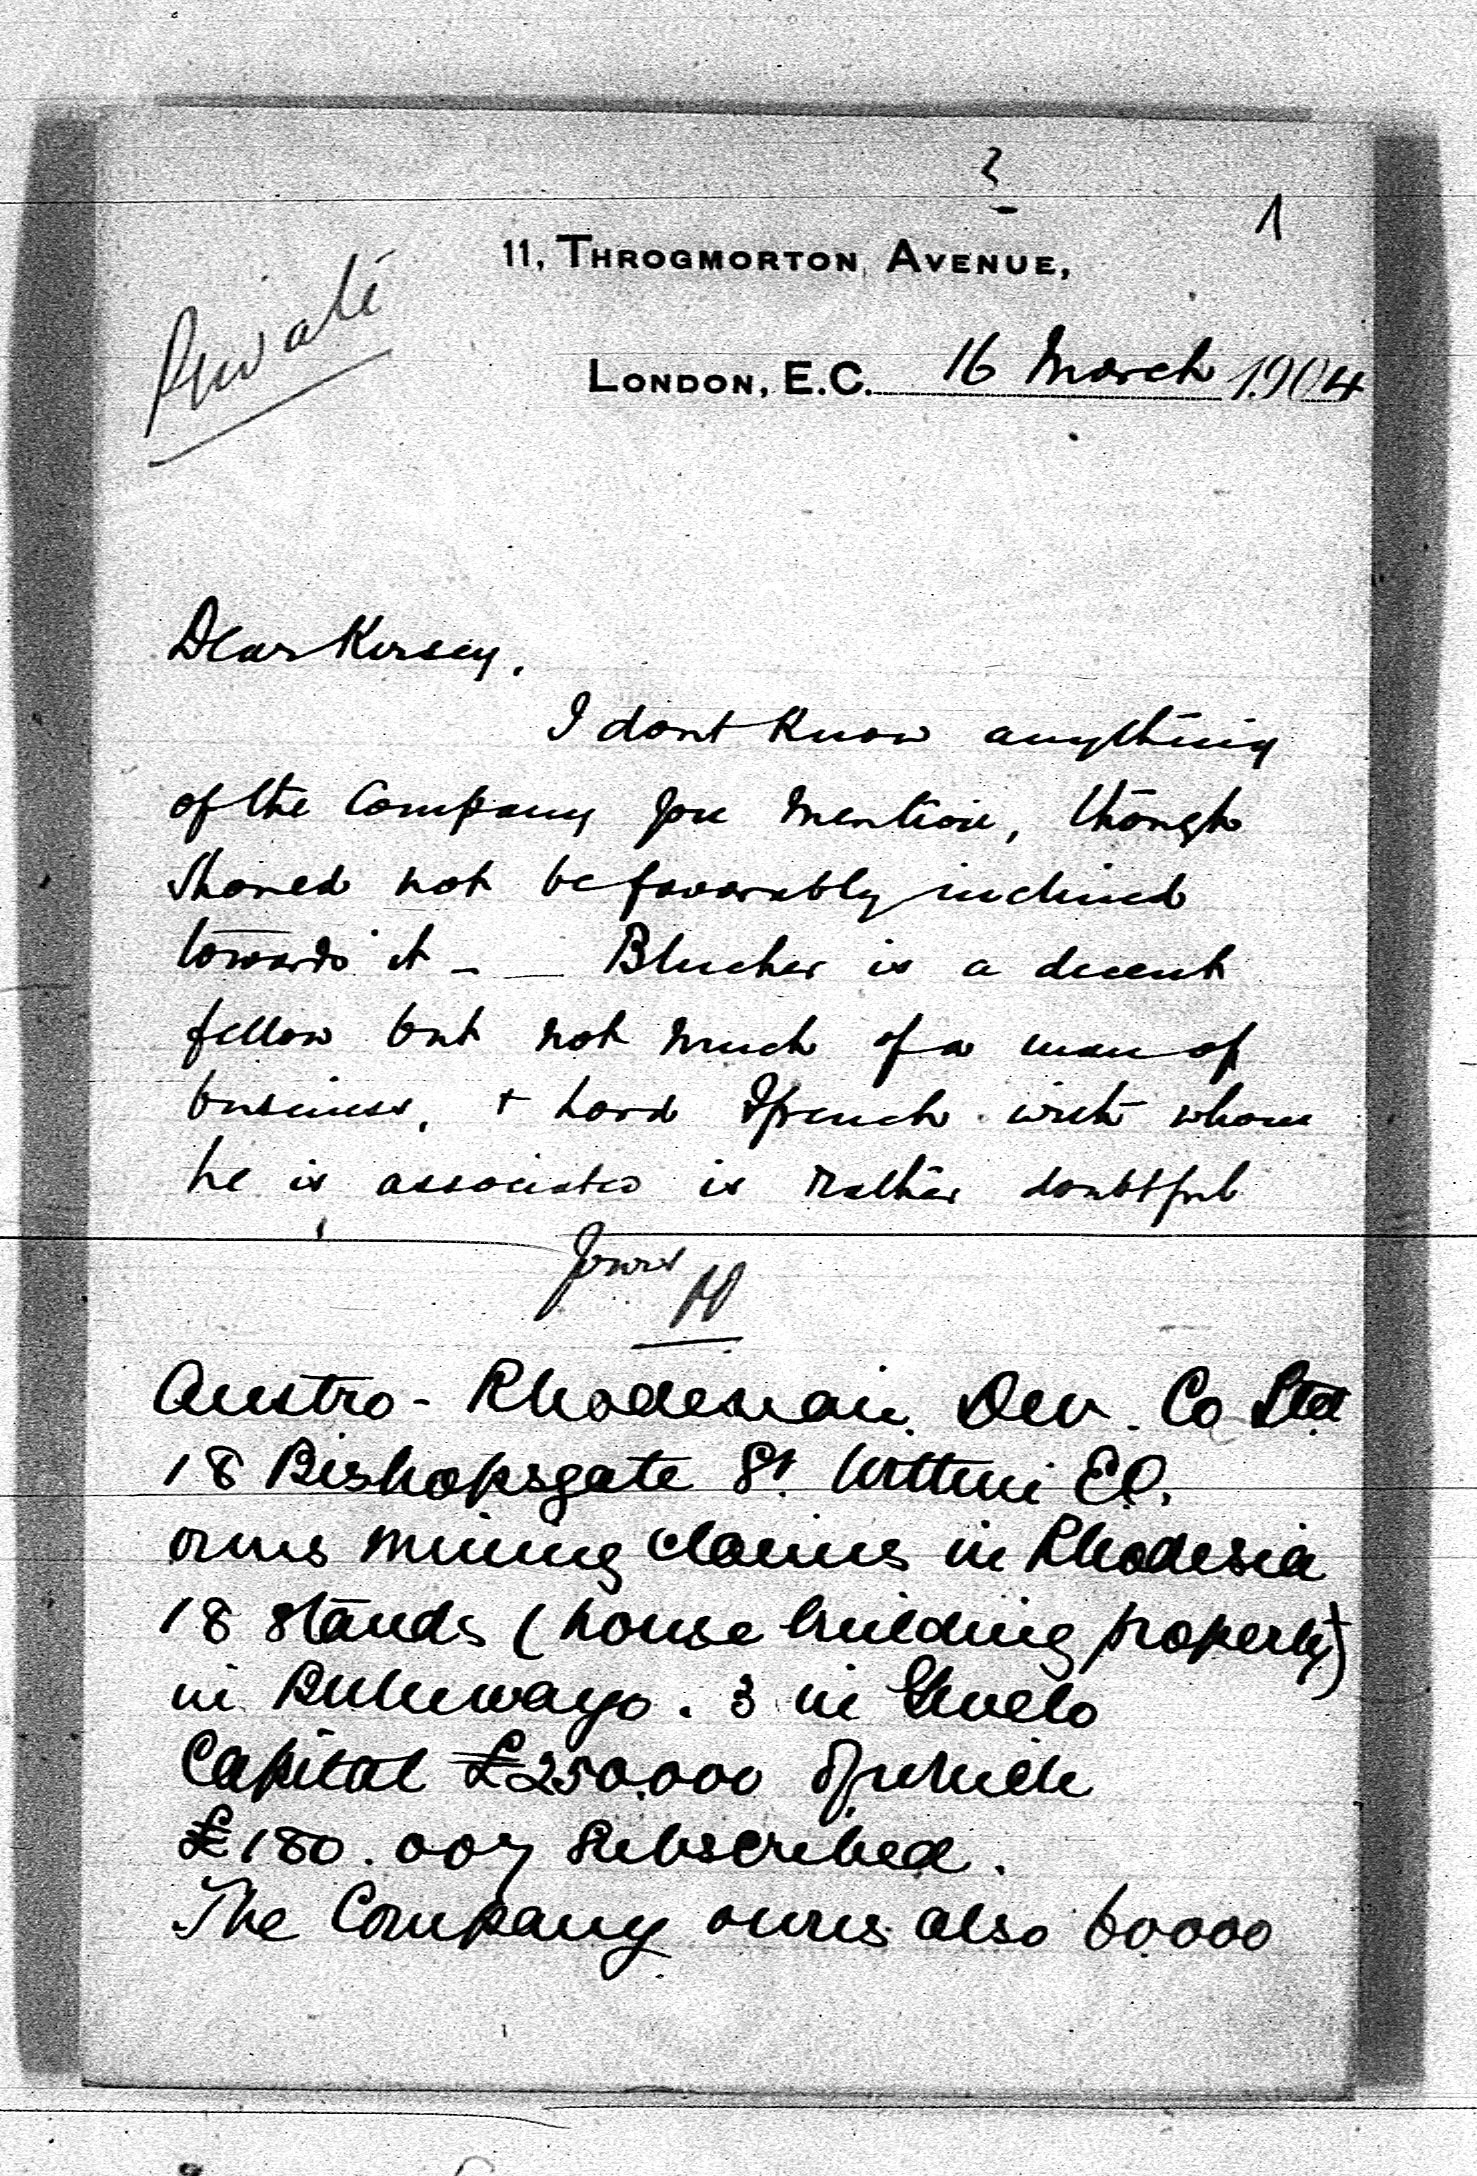 1
11, THROGMORTON AVENUE,
Private
LONDON, E.C. 16 March 1904
Dear Kersey,
I dont know anything
of the Company you mention, though
should not be favorably inclined
towards it - — Blucher is a decent
fellow but not much of a man of
business, + Lord Ffrench with whom
he is associated is rather doubtful
Yours
H
Austro-Rhodesian Dev. Co Ltd
18 Bishopsgate St. Within EC.
owns mining claims in Rhodesia
18 stands (house building property)
in Buluwayo. 3 in Gwelo
Capital £250.000 of which
£180.007 subscribed.
The Company owns also 60000